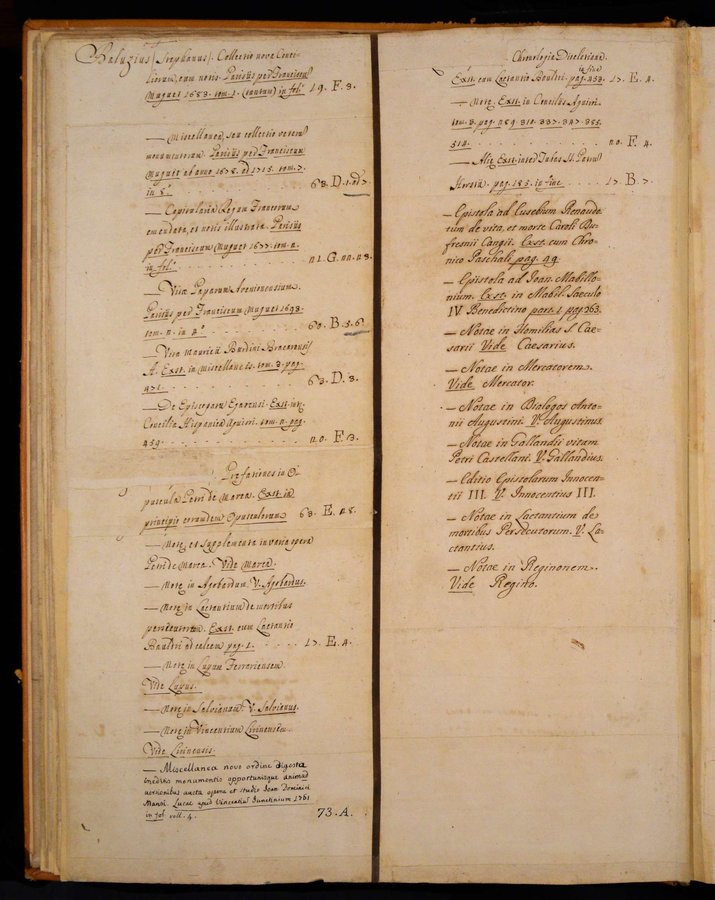 Baluzius (Stephanus). Collectio nova Conci-
liorum, cum notis. Parisiis per Franciscum
Muguet 1683. tom. 1. (tantum) in fol. 19. F. 3.
— Miscellanea, seu collectio veterum
monumentorum. Parisiis per Franciscum
Muguet ab anno 1678. ad 1715. tom. 7.
in 8° 63. D. 1. ad 7.
— Capitularia Regum Francorum
emendata, et notis illustrata. Parisiis
per Franciscum Muguet 1677. tom. 2.
in fol. 21. G. 22. 23.
— Vitae Paparum Avenionensium.
Parisiis per Franciscum Muguet 1693.
tom. 2. in 4° 60. B. 5. 6.
— Vita Mauricii Burdini Bracarensis
A. Exst. in Miscellaneis. tom. 3. pag.
471. 63. D. 3.
— De Episcopatu Egarensi. Exst. int.
Concilia Hispaniae Aguirri. tom. 2. pag.
459. 20. F. 3.
Prefationes in O-
puscula Petri de Marca. Exst. in
principio eorumdem Opusculorum 63. E. 28.
— Note, et supplementa in varia opera
Petri de Marca. Vide Marca.
— Note in Agobardum. V. Agobardus.
— Note in Lactantium de mortibus
persecutorum. Exst. cum Lactantio
Baultri ad calcem pag. 1. 17. E. 4.
— Note in Lupum Ferrariensem.
Vide Lupus.
— Note in Salvianum. V. Salvianus.
— Note in Vincentium Lirinensem.
Vide Lirinensis.
— Miscellanea novo ordine digesta
ineditis monumentis opportunisque animad
versionibus aucta opera et studio Ioan Dominici
Mansi. Lucae apud Vincentiū Iunctinium 1761
in fol. voll. 4. 73. A.
Chronologia Diocletianea.
Exst. cum Lactantio Baultri. pag. 453. in fine 17. E. 4.
— Note. Exst. in Conciliis Aguirri.
tom. 3. pag. 289. 310. 337. 347. 355.
514. 20. F. 4.
— Alie Exst. inter
pag. 185. in fine 17. B. 7.
— Epistola ad Eusebium Renaudo-
tum de vita, et morte Caroli Du-
fresnii Cangii. Exst. cum Chro-
nico Paschali pag. 49.
— Epistola ad Ioan. Mabillo-
nium. Exst. in Mabil. saeculo
IV. Benedictino part. 1. pag. 263.
— Notae in Homilias S. Cae-
sarii Vide Caesarius.
— Notae in Mercatorem.
Vide Mercator.
— Notae in Dialogos Anto-
nii Augustini. V. Augustinus.
— Notae in Gallandii vitam
Petri Castellani. V. Gallandius.
— Editio Epistolarum Innocen-
tii III. V. Innocentius III.
— Notae in Lactantium de
mortibus Persecutorum. V. La-
ctantius.
— Notae in Reginonem.
Vide Regino.